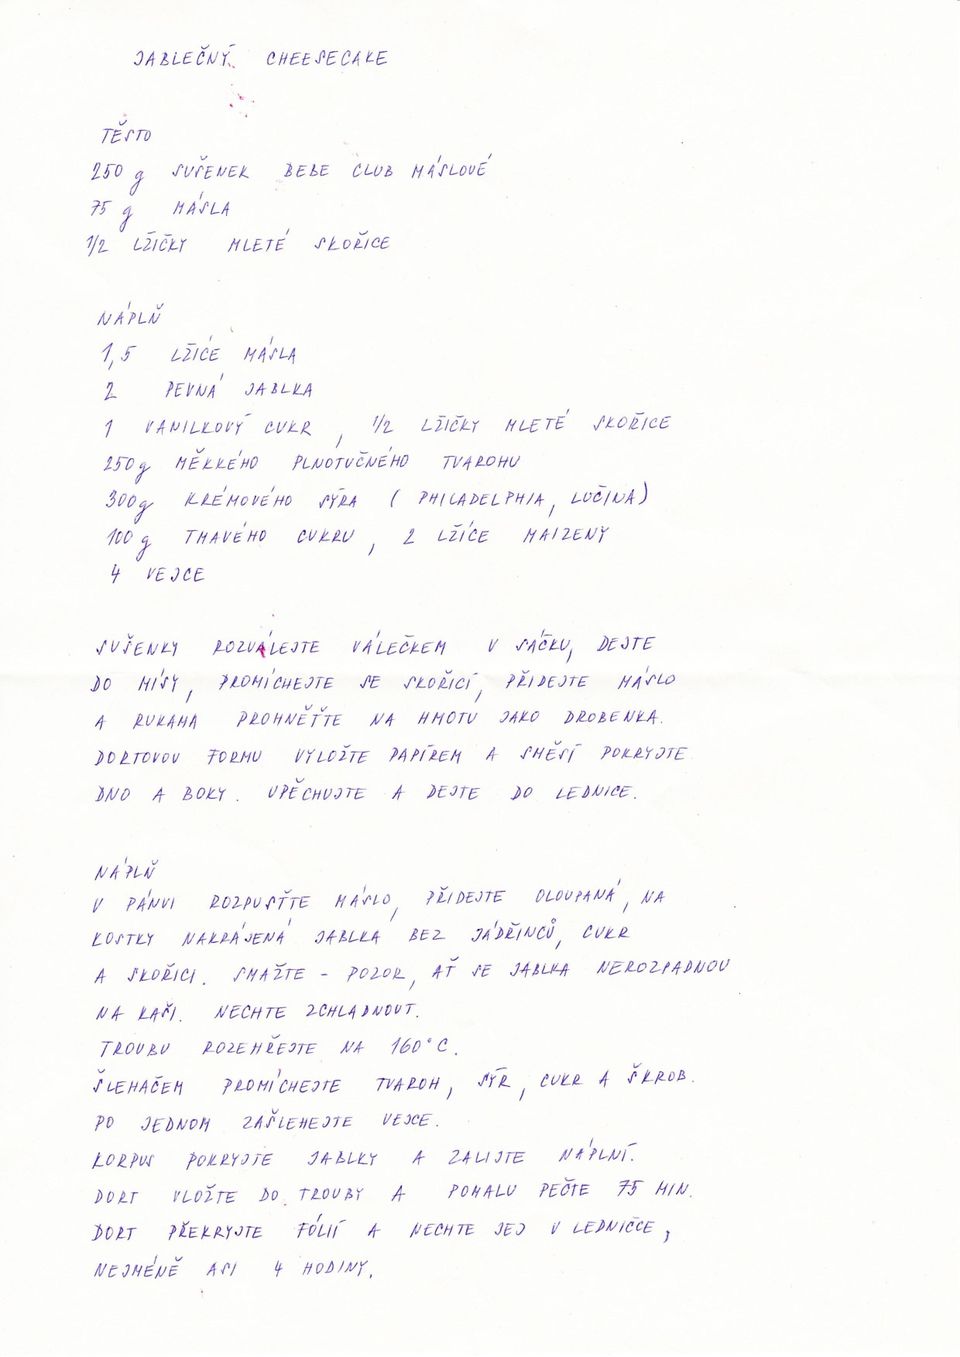 JABLEČNÝ CHEESECAKE
TĚSTO
250 g SUŠENEK BEBE CLUB MÁSLOVÉ
75 g MÁSLA
1/2 LŽIČKY MLETÉ SKOŘICE
NÁPLŇ
1,5 LŽÍCE MÁSLA
2 PEVNÁ JABLKA
1 VANILKOVÝ CUKR, 1/2 LŽIČKY MLETÉ SKOŘICE
250g MĚKKÉHO PLNOTUČNÉHO TVAROHU
300g KRÉMOVÉHO SÝRA (PHILADELPHIA, LUČINA)
100 g TMAVÉHO CUKRU, 2 LŽÍCE MAIZENY
4 VEJCE
SUŠENKY ROZVÁLEJTE VÁLEČKEM V SÁČKU, DEJTE
DO MÍSY, PROMÍCHEJTE SE SKOŘICÍ, PŘIDEJTE MÁSLO
A RUKAMA PROHNĚŤTE NA HMOTU JAKO DROBENKA.
DORTOVOU FORMU VYLOŽTE PAPÍREM A SMĚSÍ POKRYJTE
DNO A BOKY. UPĚCHUJTE A DEJTE DO LEDNICE.
NÁPLŇ
V PÁNVI ROZPUSŤTE MÁSLO, PŘIDEJTE OLOUPANÁ, NA
KOSTKY NAKRÁJENÁ JABLKA BEZ JÁDŘINCŮ, CUKR
A SKOŘICI. SMAŽTE - POZOR, AŤ SE JABLKA NEROZPADNOU
NA KAŠI. NECHTE ZCHLADNOUT.
TROUBU ROZEHŘEJTE NA 160°C.
ŠLEHAČEM PROMÍCHEJTE TVAROH, SÝR, CUKR A ŠKROB.
PO JEDNOM ZAŠLEHEJTE VEJCE.
KORPUS POKRYJTE JABLKY A ZALIJTE NÁPLNÍ.
DORT VLOŽTE DO TROUBY A POMALU PEČTE 75 MIN.
DORT PŘEKRYJTE FÓLIÍ A NECHTE JEJ V LEDNIČCE,
NEJMÉNĚ ASI 4 HODINY.